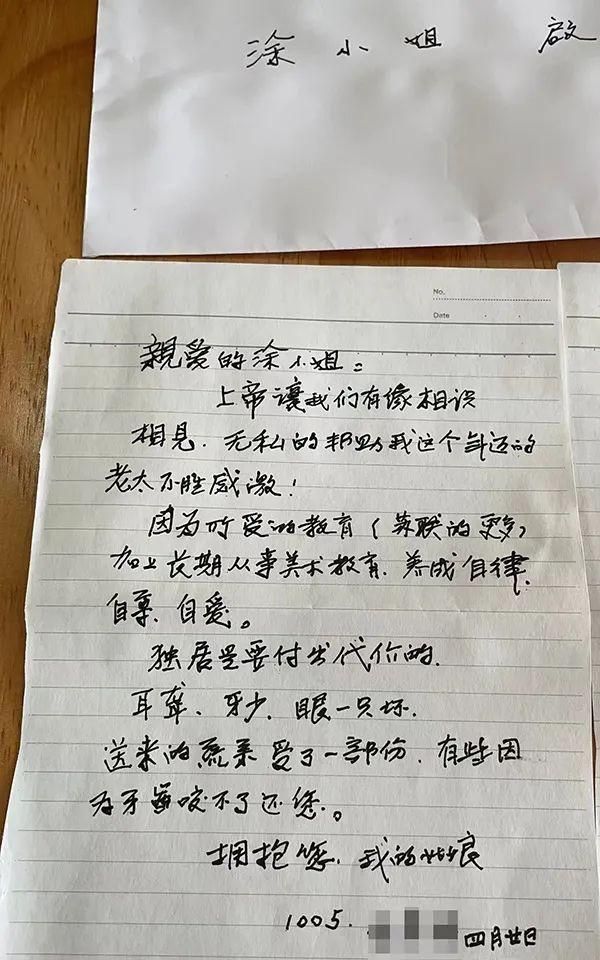 涂小姐 啟
No.
Date
親爱的涂小姐：
上帝讓我们有缘相识
相见．无私的邦助我这个年迈的
老太不胜感激！
因为所受的教育（苏联的更多）
加上长期从事美术教育．养成自律．
自尊．自爱。
独居是要付出代价的．
耳聋．牙少．眼一只坏．
送来的蔬菜受了一部份．有些因
为牙齒咬不了还您。
拥抱您．我的姑娘
1005．
四月廿日